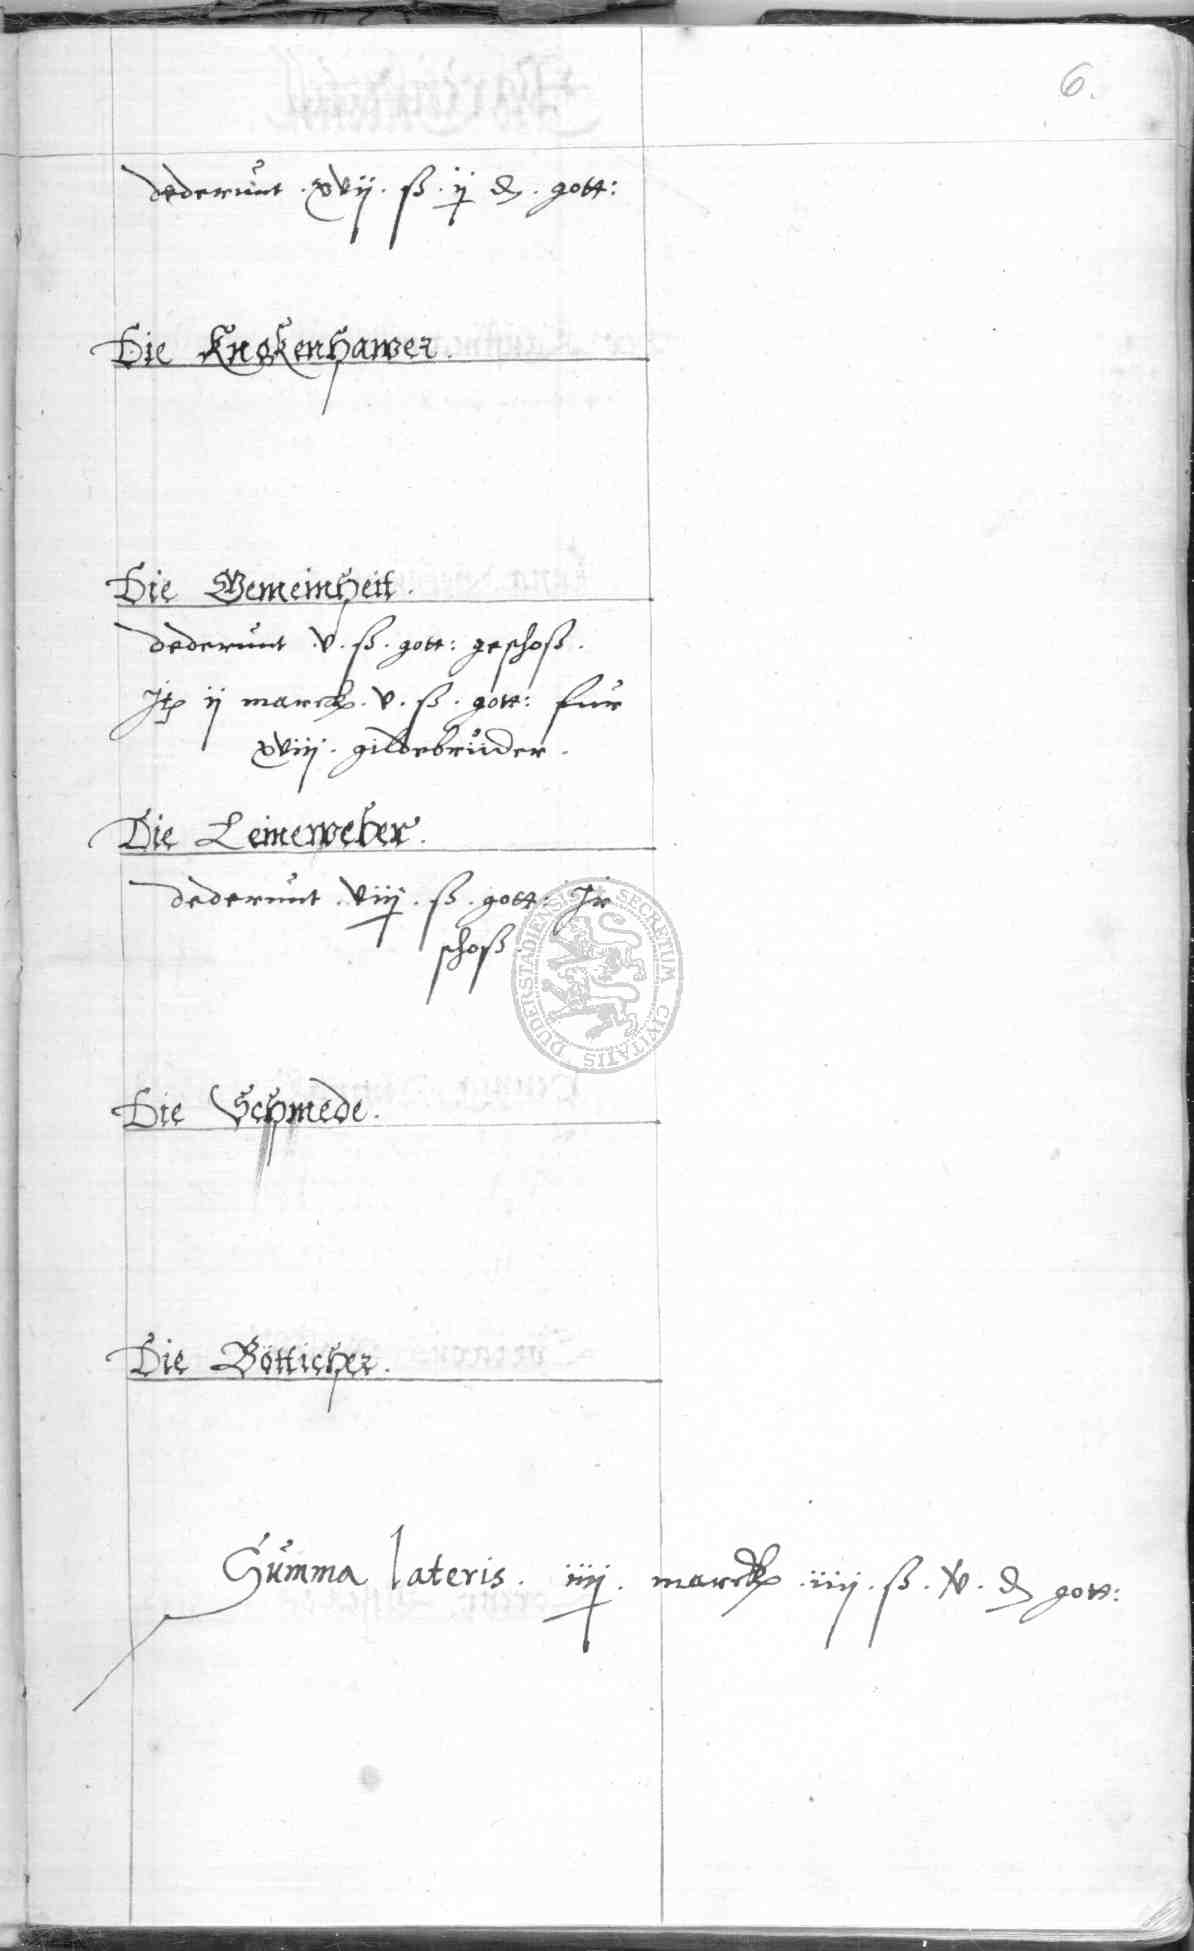 6.
dederunt . xvij . ß . ij ₰ . gott:
Die Knokenhawer.
Die Gemeinheit.
dederunt . v . ß . gott: geschoß .
Itp ij marck . v . ß . gott: fur
xviij . gildebruder .
Die Leineweber.
dederunt . viij . ß . gott: Ir
schoß
SECRETUM CIVITATIS DUDERSTADIENSIS
Die Schmede.
Die Bötticher.
Summa lateris . iiij . marck . iiij . ß . v . ₰ gott: